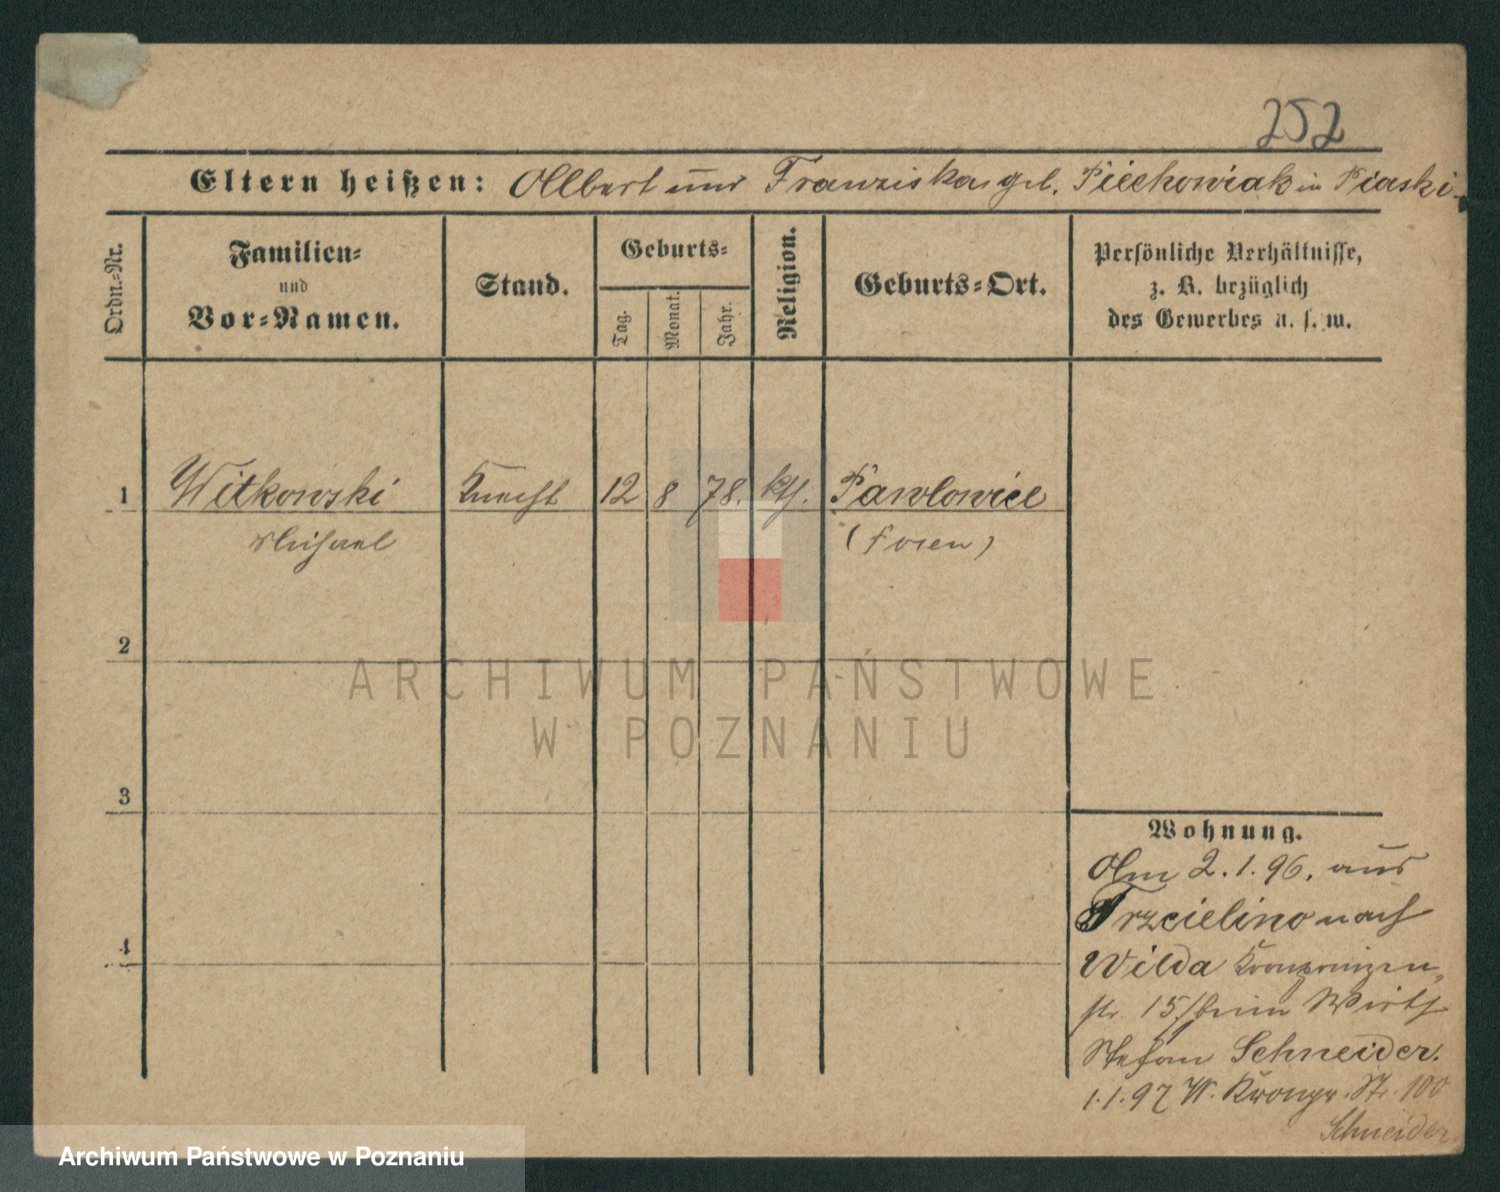 252
Eltern heißen: Albert und Franziska geb. Piechowiak in Piaski.
Ordn.-Nr.
Familien-
und
Vor-Namen.
Stand.
Geburts-
Tag.
Monat.
Jahr.
Religion.
Geburts-Ort.
Persönliche Verhältnisse,
z. B. bezüglich
des Gewerbes u. s. w.
1 Witkowski Knecht 12 8 78. kth. Pawlowice
Michael (Posen)
2
3
4
Wohnung.
Am 2.1.96. aus
Trzcielino nach
Wilda Kronprinzen-
str. 15/ beim Wirth
Stefan Schneider.
1.1.97 W. Kronpr. Str. 100
Schneider
ARCHIWUM PAŃSTWOWE
W POZNANIU
Archiwum Państwowe w Poznaniu